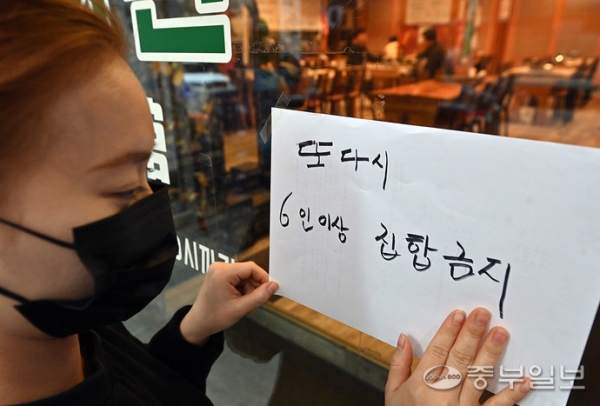 또다시
6인이상 집합금지
중부일보